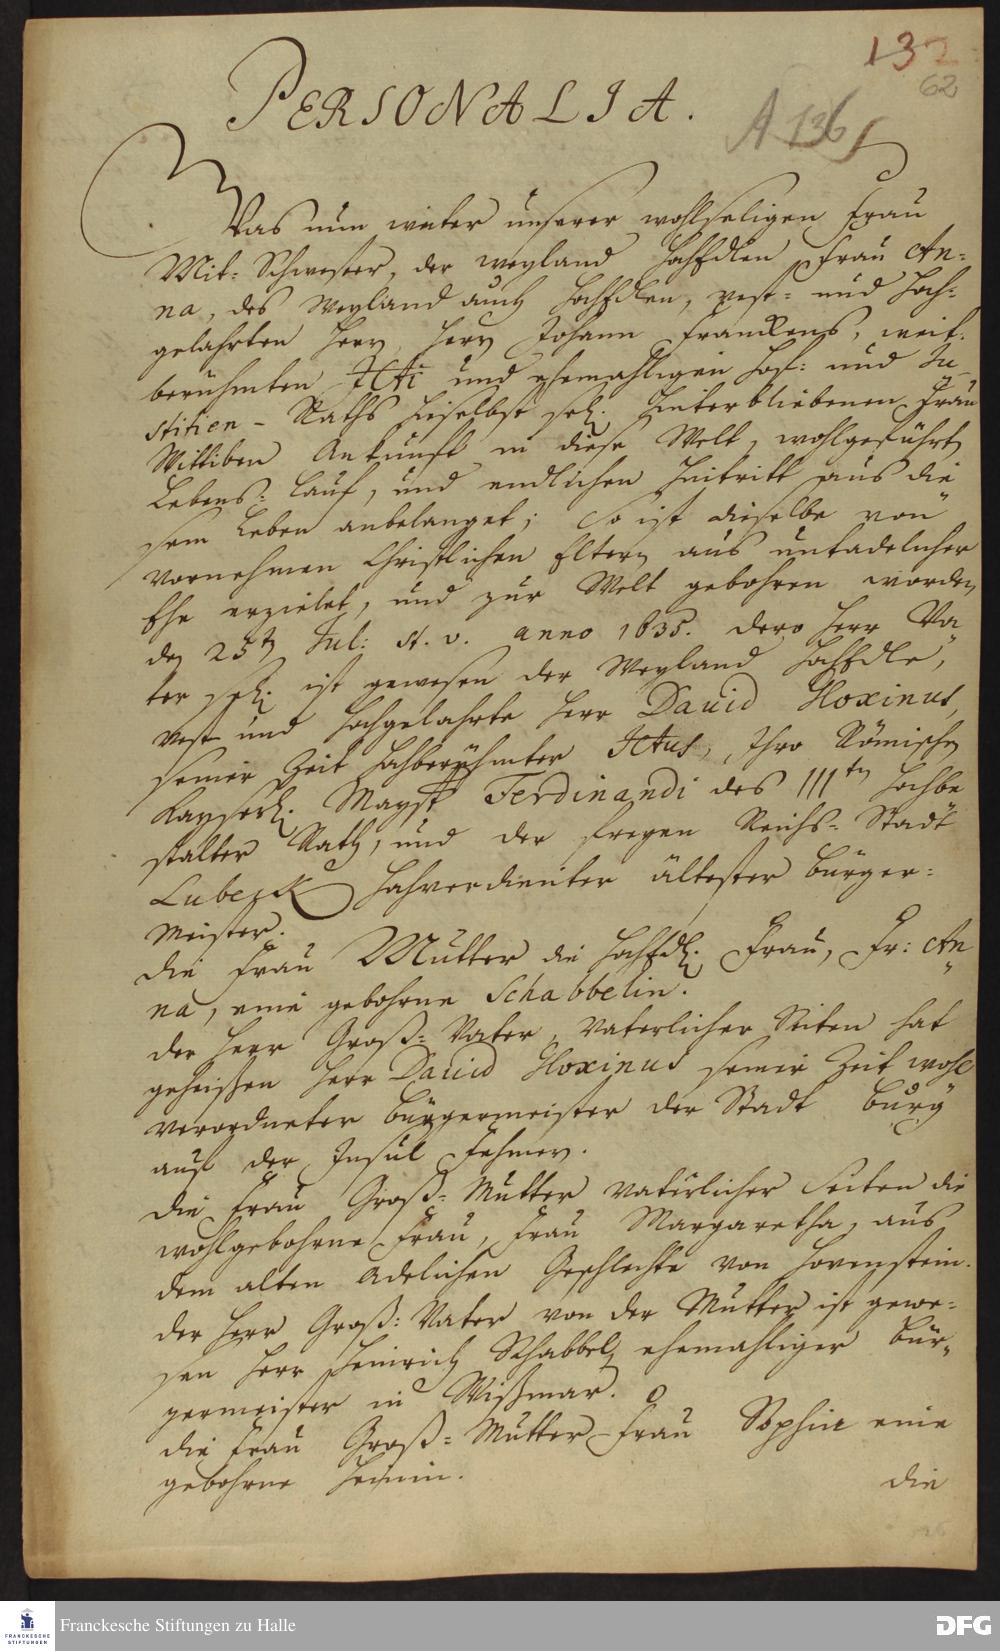 132
62
PERSONALIA.
A 136
Was nun weiter unserer wohlseligen Frau
Mit-Schwester, der weyland HochEdlen Frau An-
na, des Weyland auch HochEdlen, vest- und Hoch-
gelahrten Herrn, Herrn Johann Franckens, weit-
berühmten JCti und ehemahligen Hof- und Ju-
stitien-Raths hieselbst sel. hinterbliebenen Frau
Wittiben Ankunfft in diese Welt, wohlgeführten
Lebens-Lauf, und endlichen Hintritt aus die
sem Leben anbelanget; So ist dieselbe von
vornehmen Christlichen Eltern aus untadelicher
Ehe erzielet, und zur Welt gebohren worden
den 25ten Jul: st. v. anno 1635. dero Herr Va
ter sel. ist gewesen der Weyland HochEdle,
vest und Hochgelahrte Herr David Gloxinus,
seiner Zeit hochberühmter JCtus, Ihro Römischen
Kayserl. Mayst. Ferdinandi des IIIten hochbe
stalter Rath, und der freyen Reichs-Stadt
Lubeck hochverdienter ältester Bürger-
meister.
Die Frau Mutter die HochEdl. Frau, Fr: An
na, eine gebohrne Schabbelin.
der Herr Groß-Vater, Vaterlicher Seiten hat
geheißen Herr David Gloxinus seiner Zeit wohl
verordneter Bürgermeister der Stadt Burg
auf der Insul Fehmern.
die Frau Groß-Mutter Vaterlicher Seiten die
wohlgebohrne Frau, Frau Margaretha, aus
dem alten Adelichen Geschlechte von Hovenstein.
der Herr Groß-Vater von der Mutter ist gewe-
sen Herr Heinrich Schabbel, ehemahliger Bür-
germeister in Wißmar.
die Frau Groß-Mutter Frau Sophia eine
gebohrne
die
Franckesche Stiftungen zu Halle
FRANCKESCHE
STIFTUNGEN
DFG